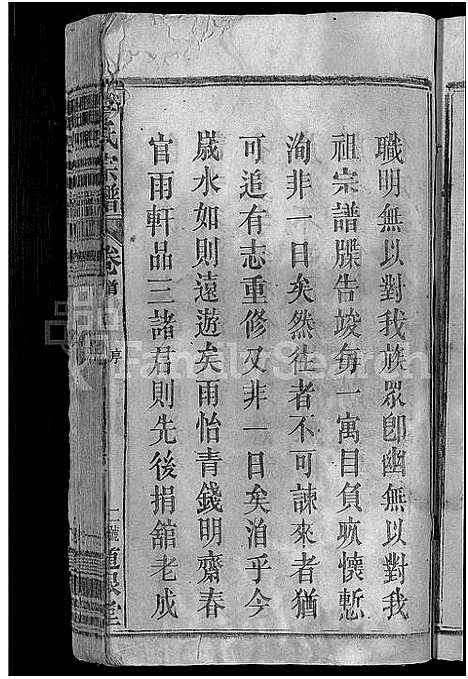 職明無以對我族眾卽幽無以對我
祖宗譜牒告竣每一寓目負疚懷慙
洵非一日矣然往者不可諫來者猶
可追有志重修又非一日矣洎乎今
歲水如則遠遊矣雨怡青錢明齋春
官雨軒品三諸君則先後捐舘老成
氏宗譜
卷首
序
堂
FamilySearch